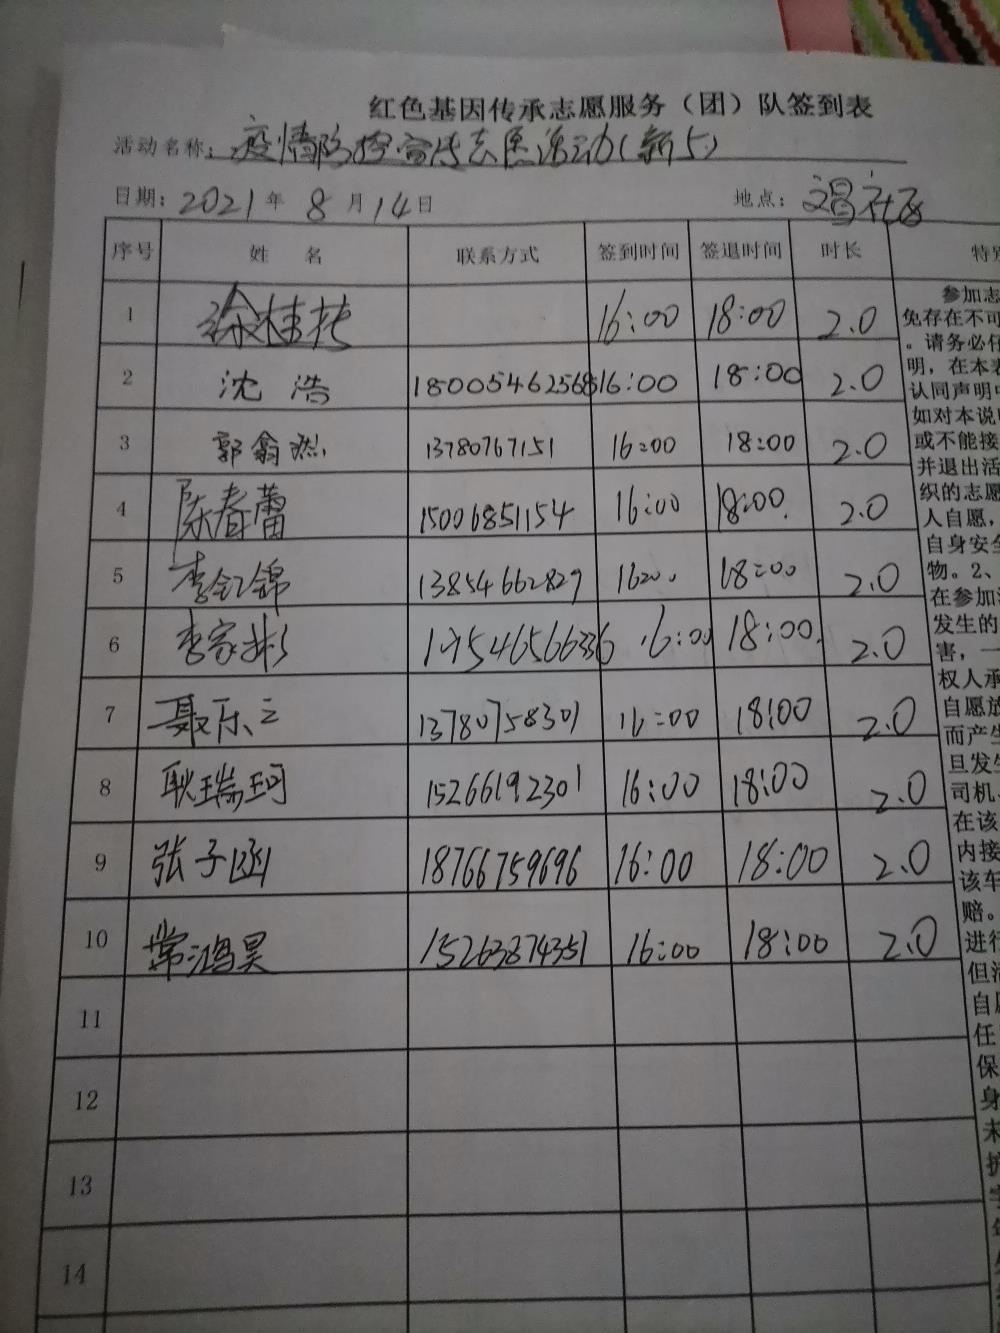 红色基因传承志愿服务（团）队签到表
活动名称：疫情防控宣传志愿活动(新5)
日期：2021年 8 月 14日 地点：文昌社区
序号 姓 名 联系方式 签到时间 签退时间 时长 特别
1 徐桂 16:00 18:00 2.0
2 沈浩 16:00 18:00 2.0
3 郭翕然 13780767151 16:00 18:00 2.0
4 陈春蕾 15006851154 16:00 18:00. 2.0
5 李钇锦 13854662829 16:00 18:00 2.0
6 李家彬 16:00 18:00. 2.0
7 聂乐之 13780758301 16:00 18:00 2.0
8 耿瑞珂 15266192301 16:00 18:00 2.0
9 张子函 18766759696 16:00 18:00 2.0
10 常鸿昊 15263874351 16:00 18:00 2.0
11
12
13
14
参加志
免存在不可
。请务必仔
明，在本表
认同声明中
如对本说明
或不能接
并退出活
织的志愿
人自愿，
自身安全
物。2、
在参加活
发生的
害，一
权人承
自愿放
而产生
旦发生
司机、
在该
内接
该车
赔。
进行
但活
自愿
任
保
身
未